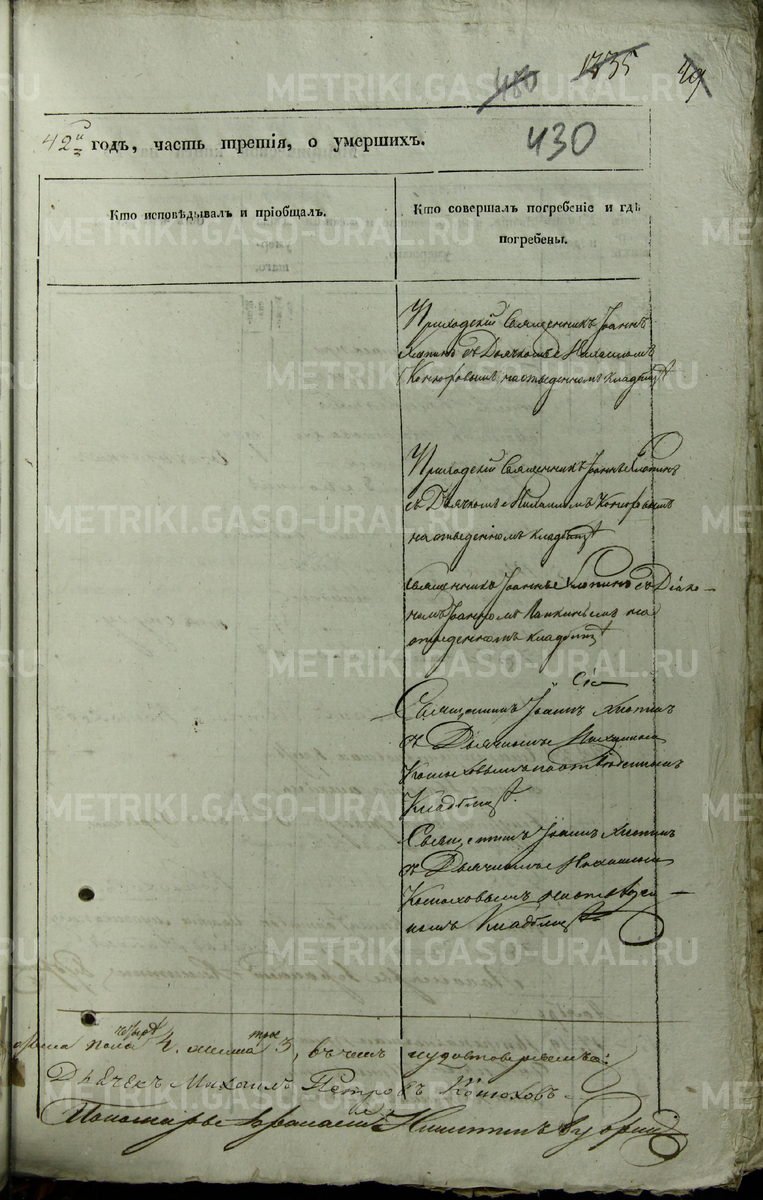 480 1735 49
42й годъ, часть третія, о умершихъ.
430
Кто исповѣдывалъ и пріобщалъ.
Кто совершалъ погребеніе и гдѣ
погребены.
Приходскій Священникъ Іоаннъ
Хлопинъ съ Дьячкомъ
на отведенномъ кладбищѣ
Приходскій Священникъ Іоаннъ Хлопинъ
съ Дьячкомъ
на отведенномъ кладбищѣ
Священникъ Іоаннъ Хлопинъ съ Діако-
номъ Іоанномъ на
отведенномъ кладбищѣ
Священникъ Іоаннъ Хлопинъ
съ Дьячкомъ Михаиломъ
Конюховымъ на отведенномъ
Кладбищѣ.
Священникъ Іоаннъ Хлопинъ
съ Дьячкомъ Михаиломъ
Конюховымъ на отведен-
номъ Кладбищѣ
пола 4. 3, въ чемъ и удостовѣряемъ:
Дьячекъ Михаилъ Петровъ Конюховъ.
Пономарь Никитинъ
METRIKI.GASO-URAL.RU